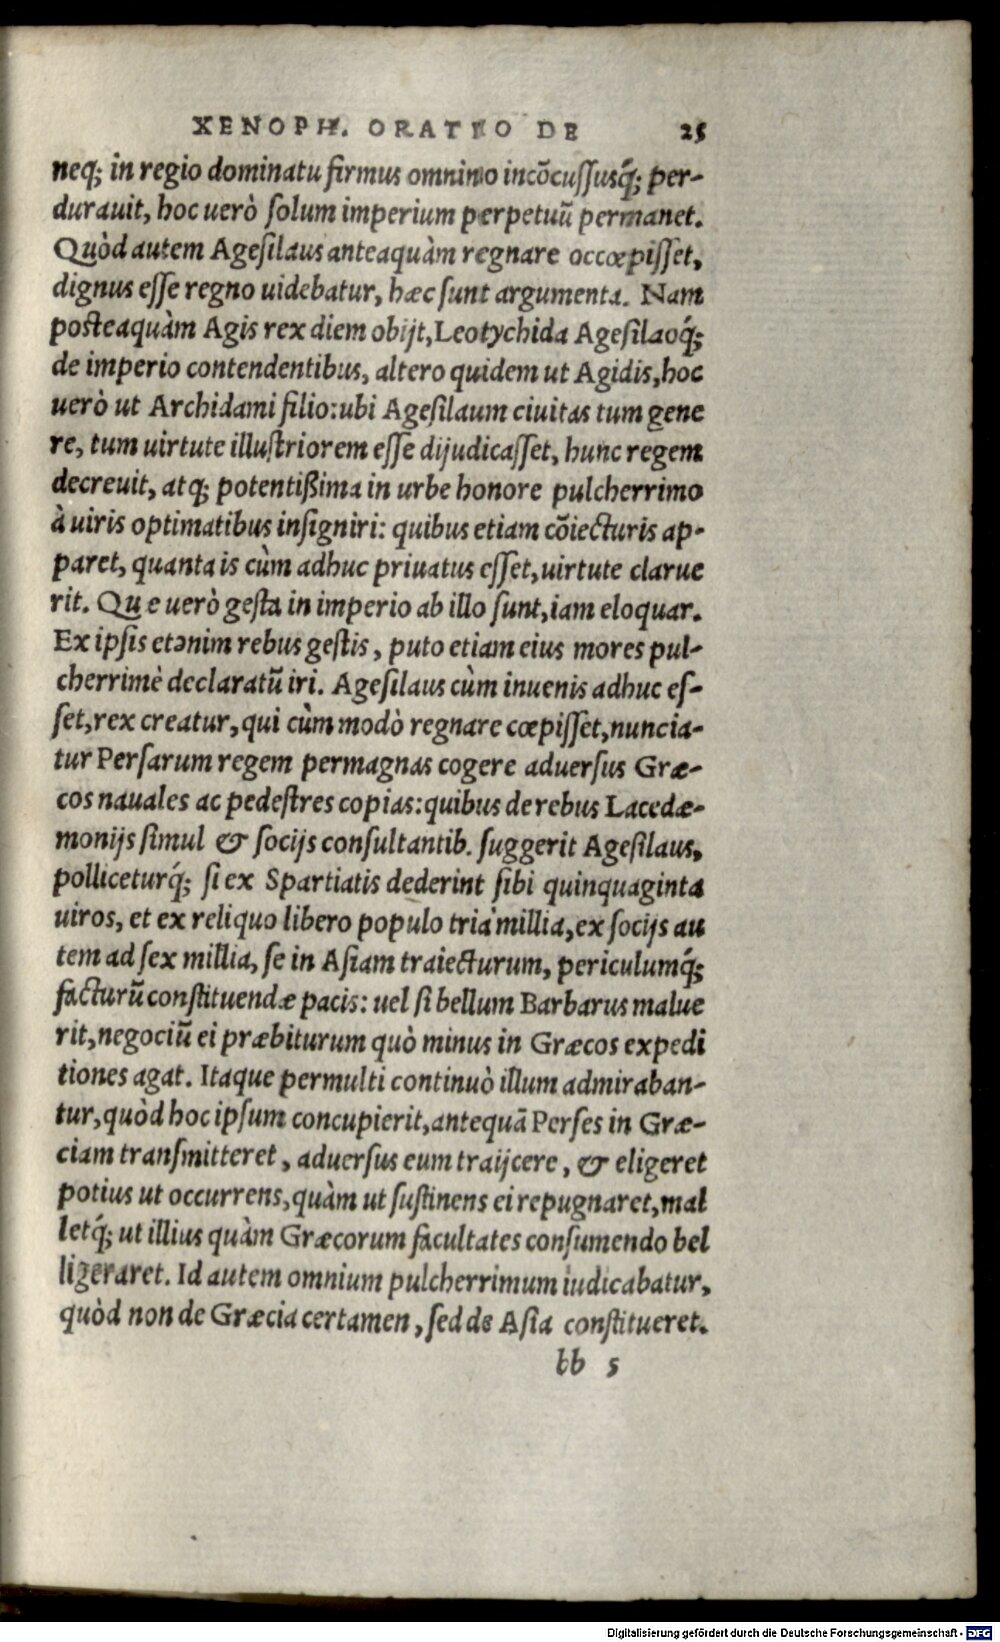 XENOPH. ORATIO DE 25
neq; in regio dominatu firmus omnino incõcussusq́; per-
durauit, hoc uerò solum imperium perpetuũ permanet.
Quòd autem Agesilaus anteaquàm regnare occœpisset,
dignus esse regno uidebatur, hæc sunt argumenta. Nam
posteaquàm Agis rex diem obijt, Leotychida Agesilaoq́;
de imperio contendentibus, altero quidem ut Agidis, hoc
uerò ut Archidami filio: ubi Agesilaum ciuitas tum gene
re, tum uirtute illustriorem esse dijudicasset, hunc regem
decreuit, atq; potentißima in urbe honore pulcherrimo
à uiris optimatibus insigniri: quibus etiam cõiecturis ap-
paret, quanta is cùm adhuc priuatus esset, uirtute clarue
rit. Qu e uerò gesta in imperio ab illo sunt, iam eloquar.
Ex ipsis etenim rebus gestis, puto etiam eius mores pul-
cherrimè declaratũ iri. Agesilaus cùm iuuenis adhuc es-
set, rex creatur, qui cùm modò regnare cœpisset, nuncia-
tur Persarum regem permagnas cogere aduersus Græ-
cos nauales ac pedestres copias: quibus de rebus Lacedæ-
monijs simul & socijs consultantib. suggerit Agesilaus,
polliceturq́; si ex Spartiatis dederint sibi quinquaginta
uiros, et ex reliquo libero populo tria millia, ex socijs au
tem ad sex millia, se in Asiam traiecturum, periculumq́;
facturũ constituendæ pacis: uel si bellum Barbarus malue
rit, negociũ ei præbiturum quò minus in Græcos expedi
tiones agat. Itaque permulti continuò illum admiraban-
tur, quòd hoc ipsum concupierit, antequã Perses in Græ-
ciam transmitteret, aduersus eum traijcere, & eligeret
potius ut occurrens, quàm ut sustinens ei repugnaret, mal
letq́; ut illius quàm Græcorum facultates consumendo bel
ligeraret. Id autem omnium pulcherrimum iudicabatur,
quòd non de Græcia certamen, sed de Asia constitueret.
bb 5
Digitalisierung gefördert durch die Deutsche Forschungsgemeinschaft - DFG